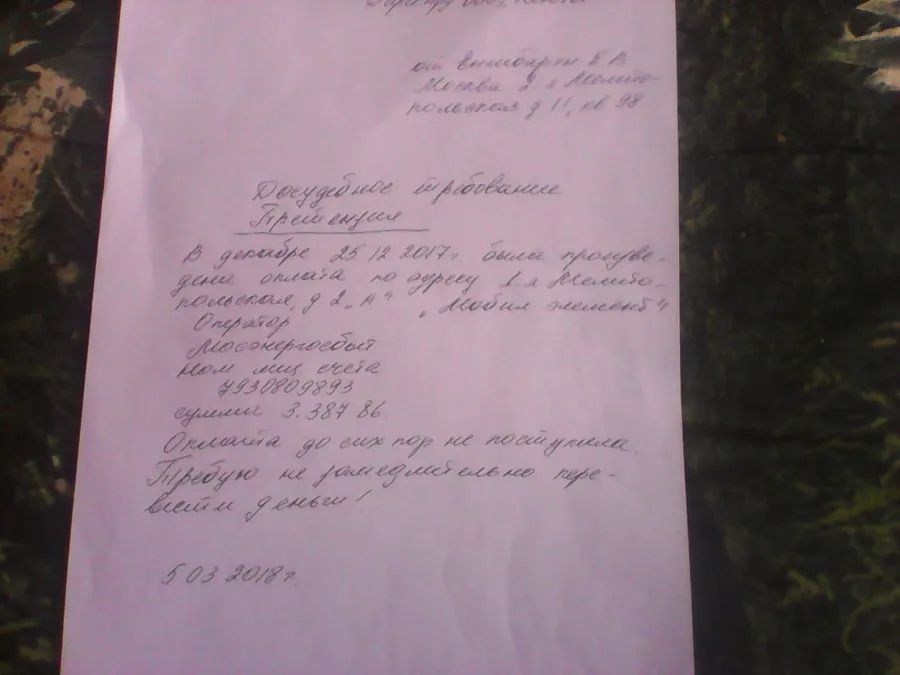 от Е В
Москва 2-я Мелито-
польская д 11, кв 98
Досудебное требование
Претензия
В декабре 25 12 2017г была произве-
дена оплата по адресу 1-я Мелито-
польская, д 2 „А" „Мобил элемент"
Оператор
Мосэнергосбыт
Ном лиц счета
7930809893
сумма 3.387 86.
Оплата до сих пор не поступила.
Требую не замедлительно пере-
вести деньги!
5 03 2018г.